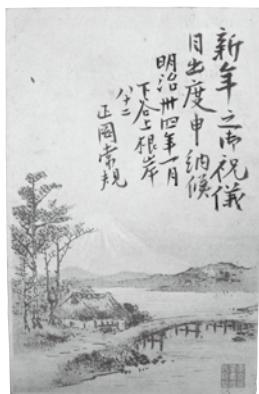 新年之御祝儀
目出度申納候
明治卅四年一月
下谷上根岸
八十二
正岡常規